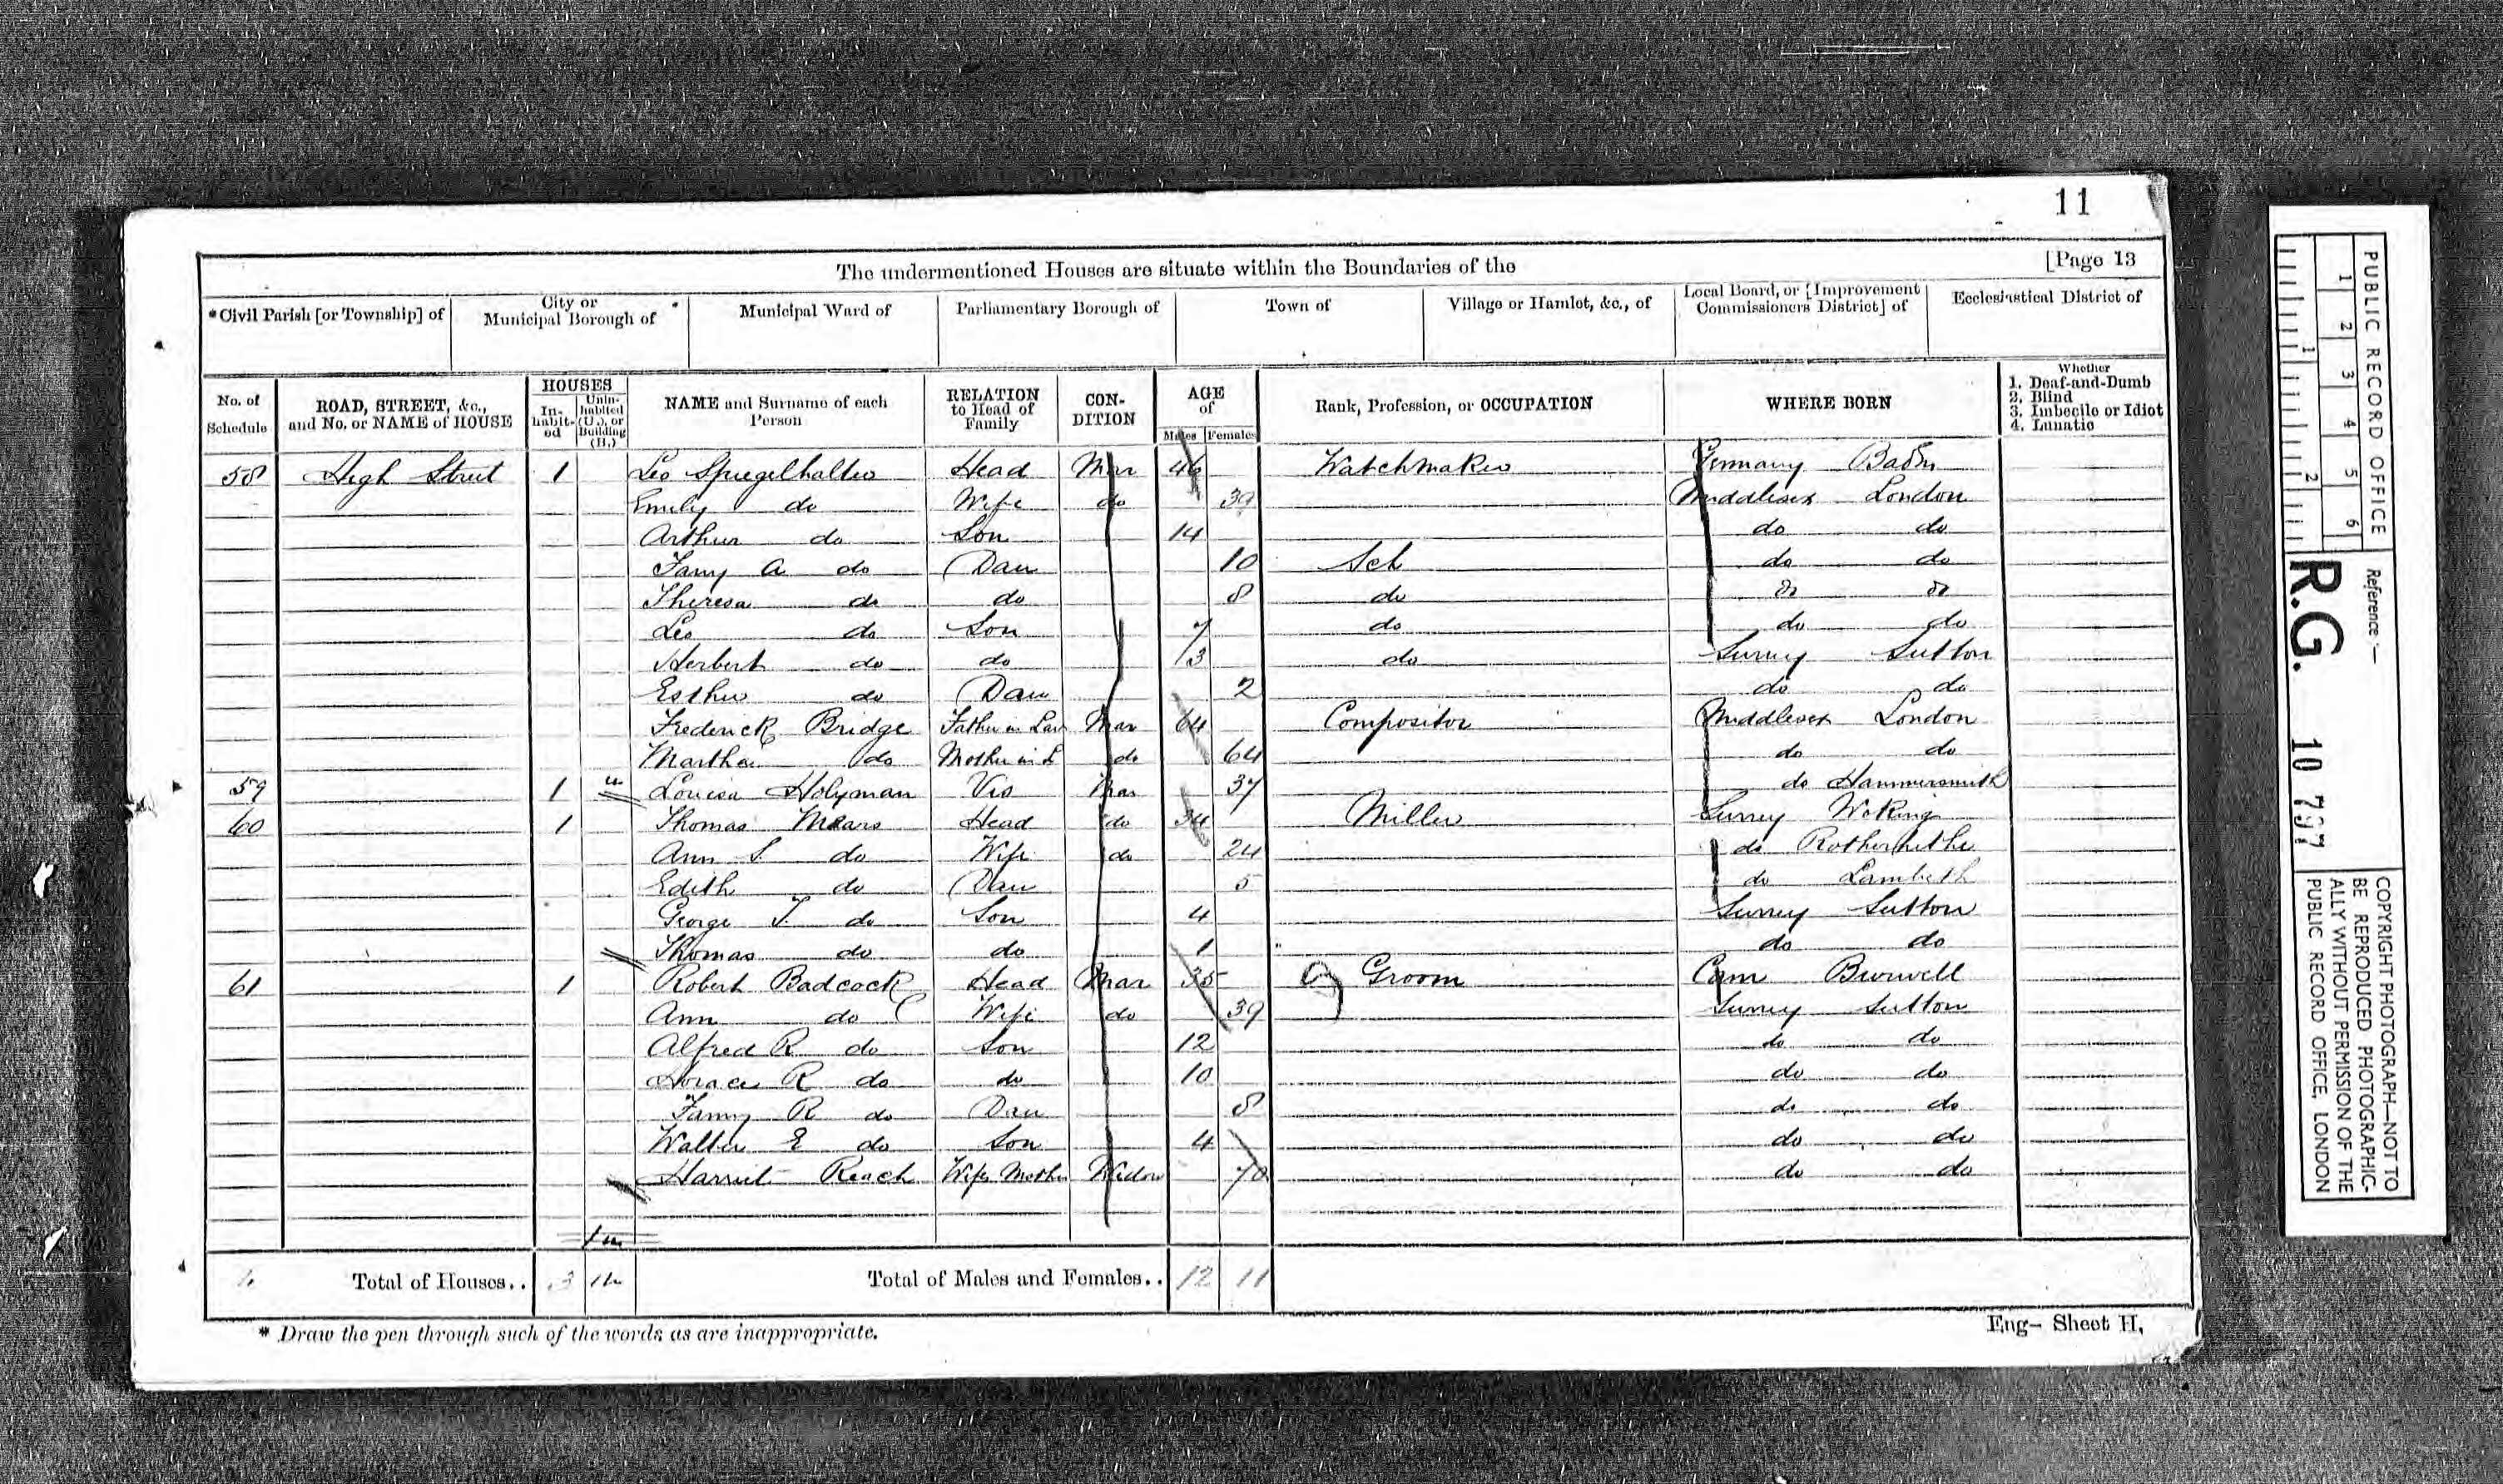 11
The undermentioned Houses are situate within the Boundaries of the [Page 13
*Civil Parish [or Township] of City or Municipal Borough of Municipal Ward of Parliamentary Borough of Town of Village or Hamlet, &c., of Local Board, or [Improvement Commissioners District] of Ecclesiastical District of
No. of Schedule ROAD, STREET, &c., and No. or NAME of HOUSE HOUSES In-habit-ed Unin-habited (U.), or Building (B.) NAME and Surname of each Person RELATION to Head of Family CON-DITION AGE of Males Females Rank, Profession, or OCCUPATION WHERE BORN Whether 1. Deaf-and-Dumb 2. Blind 3. Imbecile or Idiot 4. Lunatic
58 High Street 1 Leo Spiegelhalter Head Mar 46 Watchmaker Germany Baden
Emily do Wife do 39 Middlesex London
Arthur do Son 14 do do
Fanny A do Dau 10 Sch do do
Theresa do do 8 do do do
Leo do Son 7 do do do
Herbert do do 3 do Surrey Sutton
Esther do Dau 2 do do
Frederick Bridge Father in Law Mar 64 Compositor Middlesex London
Martha do Mother in L do 64 do do
59 1 Louisa Holyman Vis Mar 37 do Hammersmith
60 1 Thomas Mears Head do 34 Miller Surrey Woking
Ann S. do Wife do 24 do Rotherhithe
Edith do Dau 5 do Lambeth
George T. do Son 4 Surrey Sutton
Thomas do do 1 do do
61 1 Robert Badcock Head Mar 35 Groom Cam Burwell
Ann do Wife do 39 Surrey Sutton
Alfred R do Son 12 do do
Horace R do do 10 do do
Fanny R do Dau 8 do do
Walter E do Son 4 do do
Harriet Reach Wifes Mother Widow 70 do do
Total of Houses.. 3 1u Total of Males and Females.. 12 11
* Draw the pen through such of the words as are inappropriate.
Eng- Sheet H,
PUBLIC RECORD OFFICE
1 2 3 4 5 6
1 2
Reference :—
R.G. 10 797
COPYRIGHT PHOTOGRAPH—NOT TO
BE REPRODUCED PHOTOGRAPHIC-
ALLY WITHOUT PERMISSION OF THE
PUBLIC RECORD OFFICE, LONDON